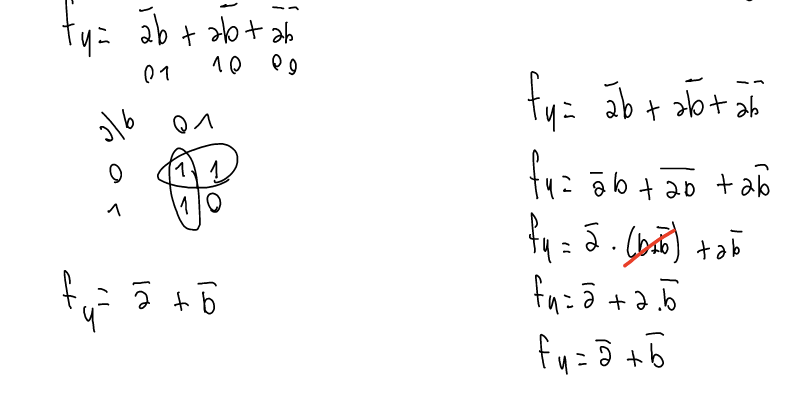 fy = a̅b + ab̅ + a̅b̅
01 10 00
a\b 0 1
0 1 1
1 1 0
fy = a̅ + b̅
fy = a̅b + ab̅ + a̅b̅
fy = a̅b + a̅b̅ + ab̅
fy = a̅ · (b+b̅) + ab̅
fy = a̅ + a.b̅
fy = a̅ + b̅